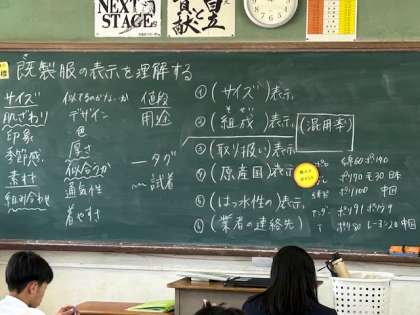 NEXT STAGE
貢献と自立
標
既製服の表示を理解する
サイズ
肌ざわり
印象
季節感
素材
組み合わせ
デザイン
色
厚さ
似合うか
通気性
着やすさ
値段
用途
―タグ
〜試着
①(サイズ)表示
②(組成)表示
そせい
(混用率)
③(取り扱い)表示
④(原産国)表示
⑤(はっ水性の)表示
⑥(業者の連絡先)
綿60 ポリ40
ポリ70 毛30 日本
ポリ100 中国
ポリ91 ポリウ9
ポリ80 レーヨン20 中国